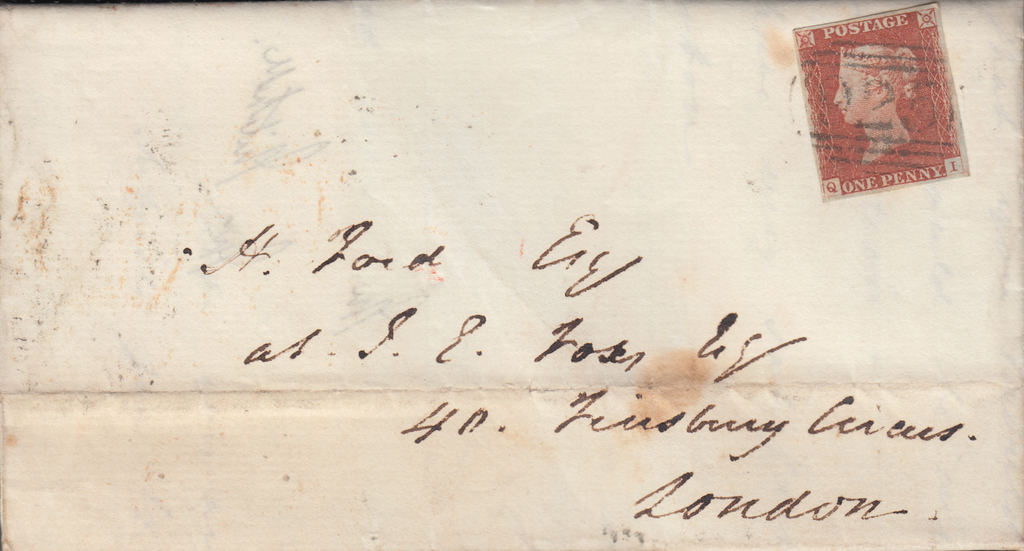 POSTAGE
Q ONE PENNY. I
H. Ford Esq
at J. E. Fox, Esq
40. Finsbury Circus.
London.